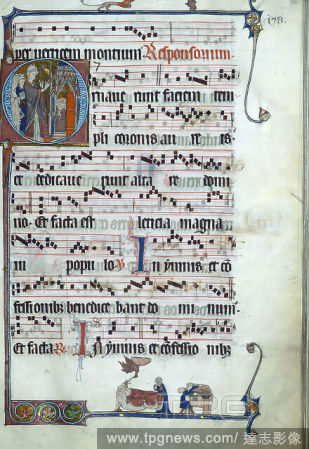 178.
per verticem montium Responsorium.
naverunt faciem tem
pli coronis au re is.
et dedicave runt alta re domi
no. Et facta est leticia magna
in popu lo. V In ymnis et co
fessionibus benedice bant do mi num.
Et facta. R. In ymnis et cofessio nibus
TPG
www.tpgnews.com/達志影像